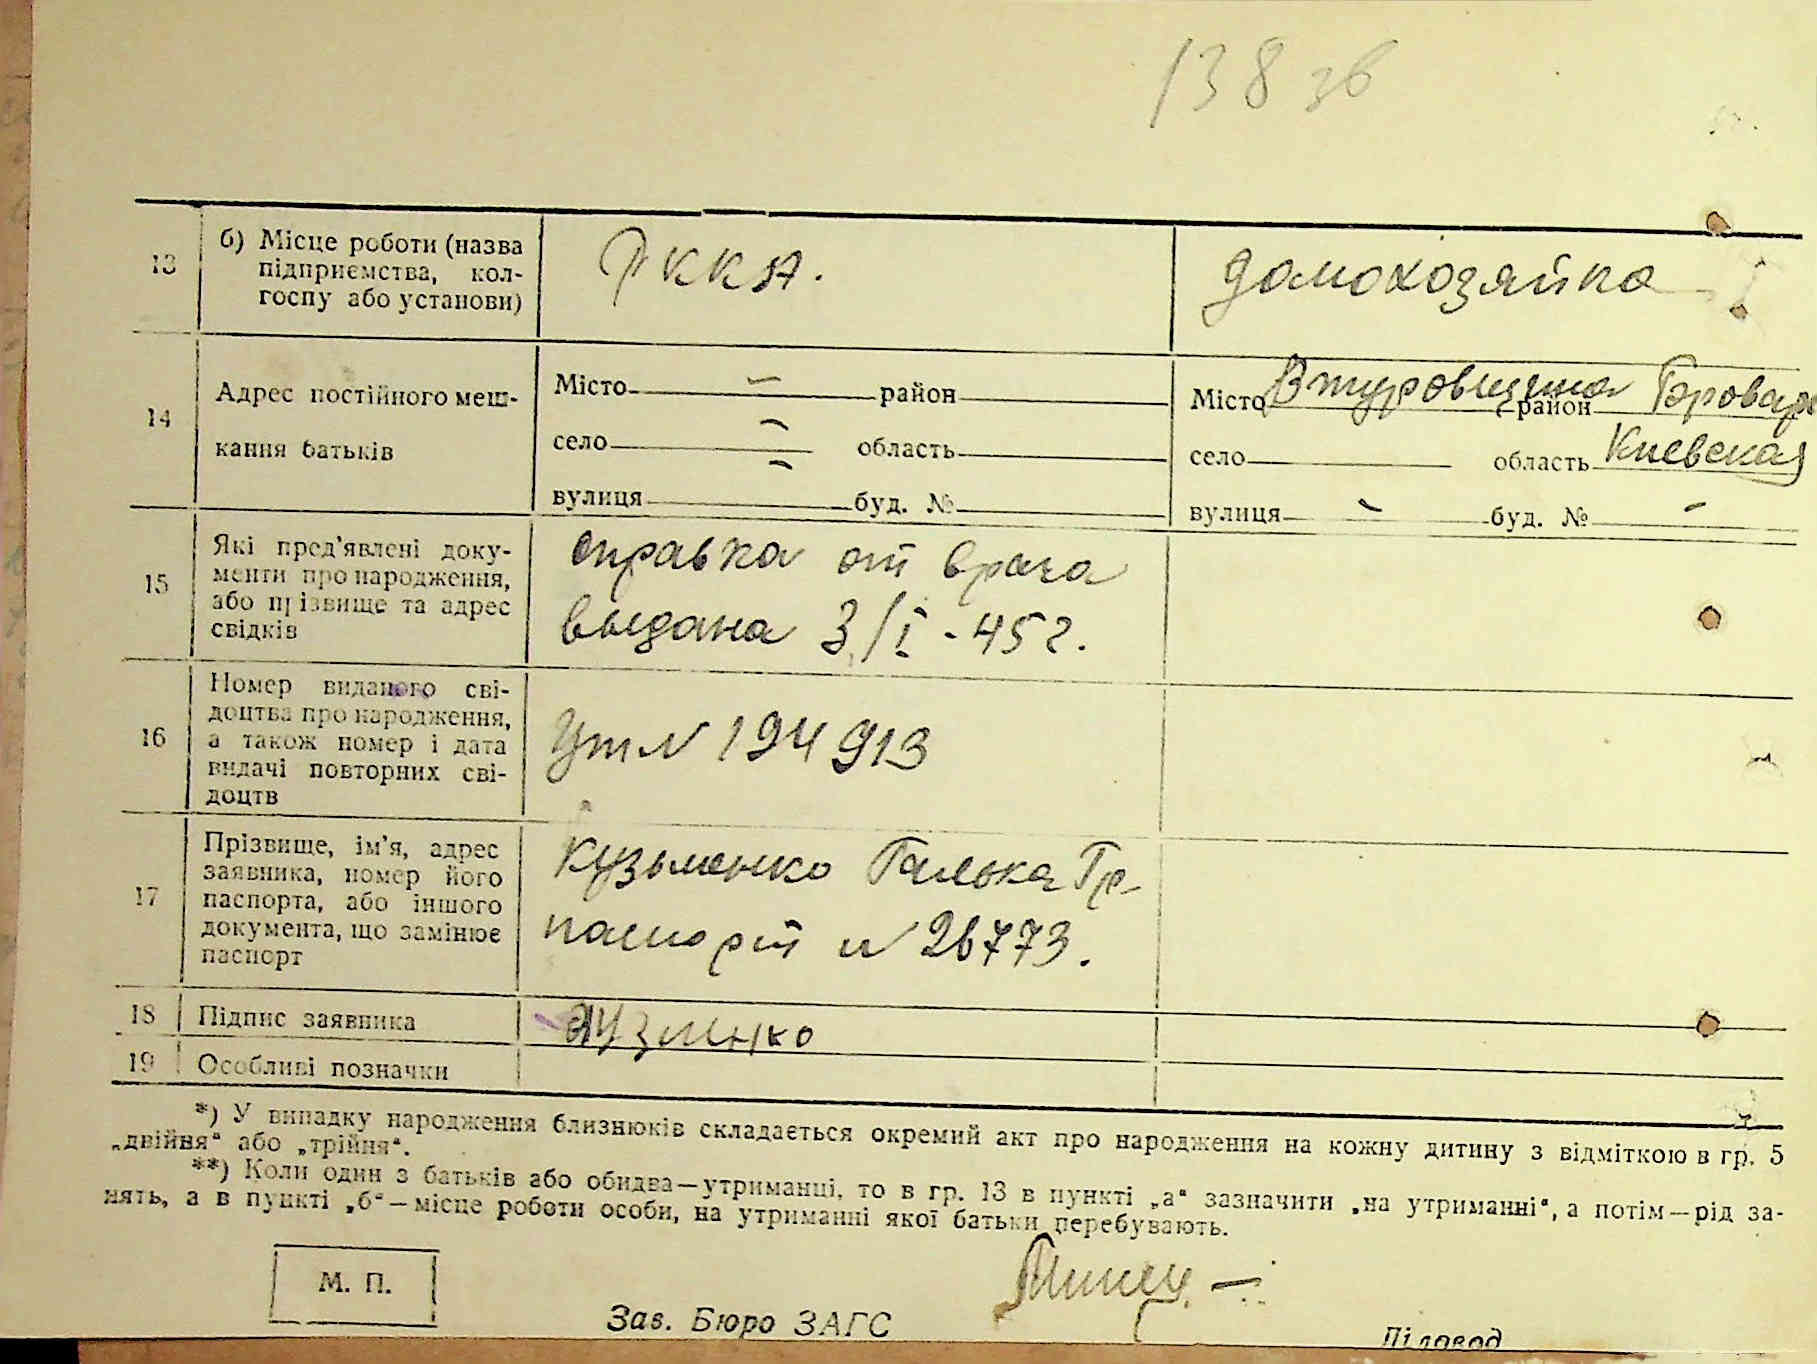 138 зв
13
б) Місце роботи (назва
підприємства, кол-
госпу або установи)
РККА.
домохозяйка
14
Адрес постійного меш-
кання батьків
Місто — район
село — область
вулиця буд. №
Місто район Бровар
село область Киевская
вулиця - буд. № -
15
Які пред'явлені доку-
менти про народження,
або прізвище та адрес
свідків
справка от врача
выдана 3/I - 45 г.
16
Номер виданого сві-
доцтва про народження,
а також номер і дата
видачі повторних сві-
доцтв
N 194913
17
Прізвище, ім'я, адрес
заявника, номер його
паспорта, або іншого
документа, що замінює
паспорт
Кузьменко Галька Гр-
паспорт N 26773.
18
Підпис заявника
Кузменко
19
Особливі позначки
*) У випадку народження близнюків складається окремий акт про народження на кожну дитину з відміткою в гр. 5
„двійня“ або „трійня“.
**) Коли один з батьків або обидва—утриманці, то в гр. 13 в пункті „а“ зазначити „на утриманні“, а потім—рід за-
нять, а в пункті „б“—місце роботи особи, на утриманні якої батьки перебувають.
М. П.
Зав. Бюро ЗАГС
Діловод